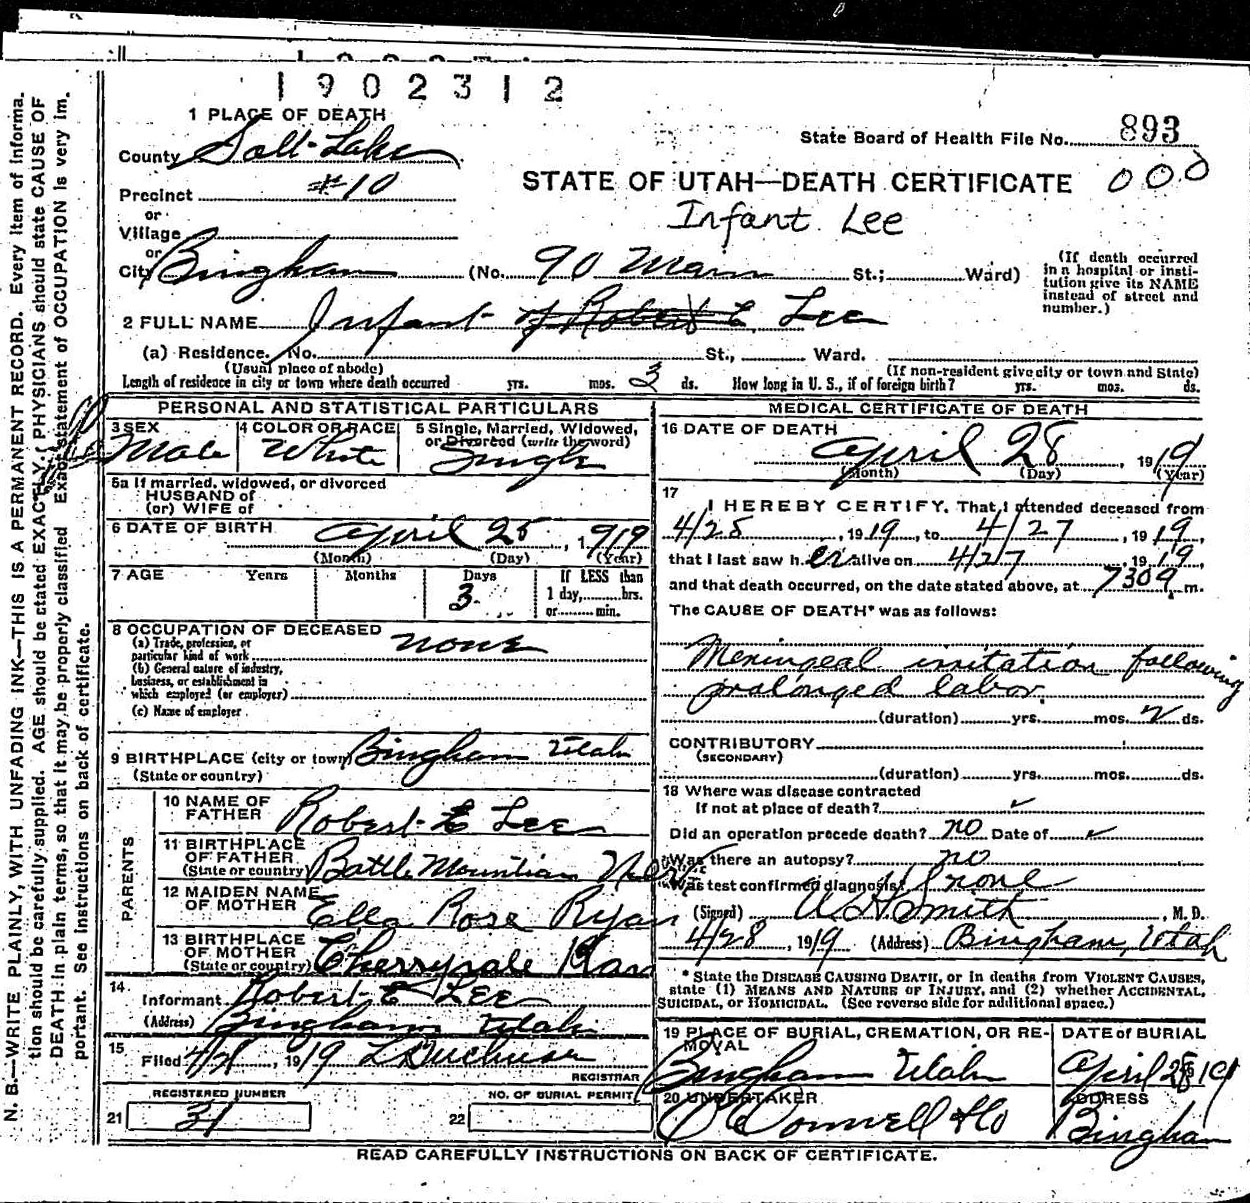 1902312
1 PLACE OF DEATH
State Board of Health File No. 893
County Salt Lake
STATE OF UTAH—DEATH CERTIFICATE 000
Precinct #10
Infant Lee
or
Village
or
City Bingham (No. 90 Main St.; Ward)
(If death occurred
in a hospital or insti-
tution give its NAME
instead of street and
number.)
2 FULL NAME Infant of Robert E Lee
(a) Residence. No. St., Ward.
(Usual place of abode) (If non-resident give city or town and State)
Length of residence in city or town where death occurred yrs. mos. 3 ds. How long in U. S., if of foreign birth? yrs. mos. ds.
PERSONAL AND STATISTICAL PARTICULARS
3 SEX 4 COLOR OR RACE 5 Single, Married, Widowed,
or Divorced (write the word)
Male White Single
5a If married, widowed, or divorced
HUSBAND of
(or) WIFE of
6 DATE OF BIRTH April 25, 1919
(Month) (Day) (Year)
7 AGE Years Months Days If LESS than
3 1 day, hrs.
or min.
8 OCCUPATION OF DECEASED
(a) Trade, profession, or
particular kind of work none
(b) General nature of industry,
business, or establishment in
which employed (or employer)
(c) Name of employer
9 BIRTHPLACE (city or town) Bingham Utah
(State or country)
PARENTS
10 NAME OF
FATHER Robert E Lee
11 BIRTHPLACE
OF FATHER
(State or country) Battle Mountian Nev
12 MAIDEN NAME
OF MOTHER Ella Rose Ryan
13 BIRTHPLACE
OF MOTHER
(State or country) Cherryvale Kan
14
Informant Robert E Lee
(Address) Bingham Utah
15
Filed 4/28, 1919
REGISTRAR
REGISTERED NUMBER NO. OF BURIAL PERMIT
21 31 22
MEDICAL CERTIFICATE OF DEATH
16 DATE OF DEATH
April 28, 1919
(Month) (Day) (Year)
17
I HEREBY CERTIFY, That I attended deceased from
4/25, 1919, to 4/27, 1919,
that I last saw h er alive on 4/27, 1919,
and that death occurred, on the date stated above, at 730 a m.
The CAUSE OF DEATH* was as follows:
Meningeal irritation following
prolonged labor
(duration) yrs. mos. 2 ds.
CONTRIBUTORY
(SECONDARY)
(duration) yrs. mos. ds.
18 Where was disease contracted
if not at place of death? ✓
Did an operation precede death? no Date of ✓
Was there an autopsy? no
Was test confirmed diagnosis?
(Signed) A H Smith, M. D.
4/28, 1919 (Address) Bingham, Utah
* State the DISEASE CAUSING DEATH, or in deaths from VIOLENT CAUSES,
state (1) MEANS AND NATURE OF INJURY, and (2) whether ACCIDENTAL,
SUICIDAL, or HOMICIDAL. (See reverse side for additional space.)
19 PLACE OF BURIAL, CREMATION, OR RE-
MOVAL
Bingham Utah
DATE of BURIAL
April 28 191
20 UNDERTAKER
O'Donnell & Co
ADDRESS
Bingham
READ CAREFULLY INSTRUCTIONS ON BACK OF CERTIFICATE.
N. B.—WRITE PLAINLY, WITH UNFADING INK—THIS IS A PERMANENT RECORD. Every item of informa-
tion should be carefully supplied. AGE should be stated EXACTLY. PHYSICIANS should state CAUSE OF
DEATH in plain terms, so that it may be properly classified. Exact statement of OCCUPATION is very im-
portant. See instructions on back of certificate.